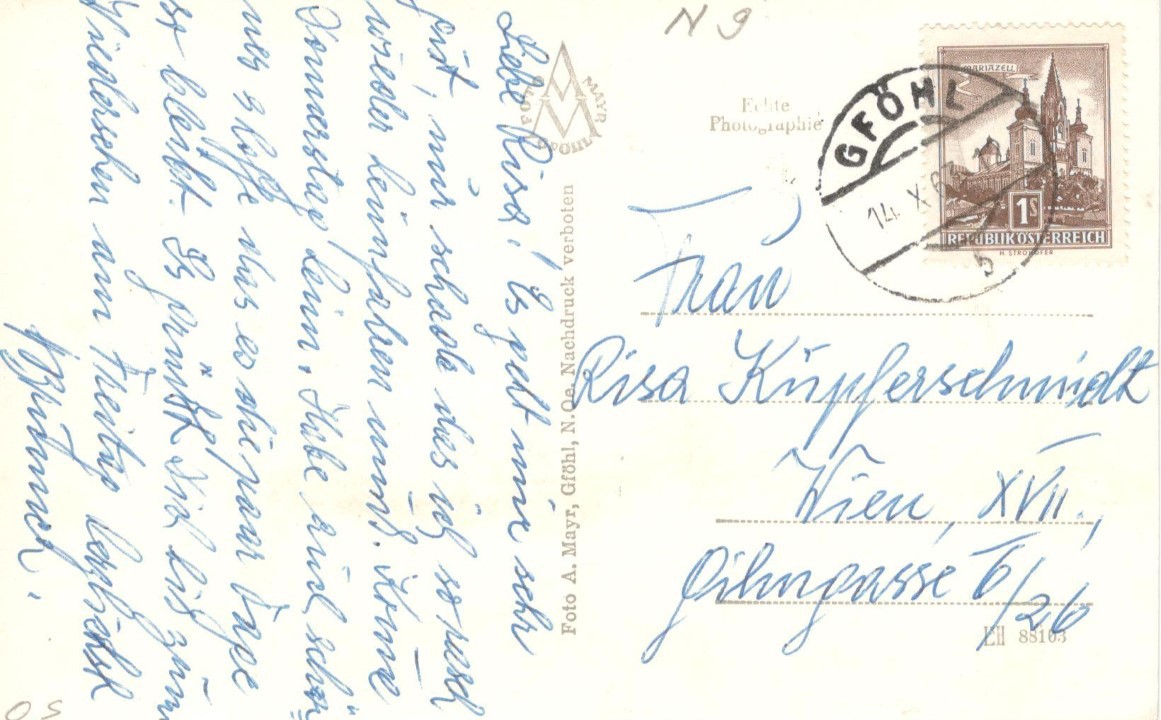 Liebe Risa! Es geht mir sehr
gut, nur schade das ich so rasch
wieder heimfahren muß. Komme
Donnerstag heim. Habe auch schön
hoffe das es die paar Tage
so bleibt. Es grüßt Dich bis zum
Wiedersehen am Freitag herzlichst
N 9
MARIAZELL
1S
REPUBLIK ÖSTERREICH
H. STROHOFER
GFÖHL
14. X. 6
b
Echte
Photographie
FOTO MAYR
GFÖHL
Foto A. Mayr, Gföhl, N.Oe. Nachdruck verboten
Frau
Risa Kupferschmidt
Wien, XVII.,
Gilmgasse 6/26
88103